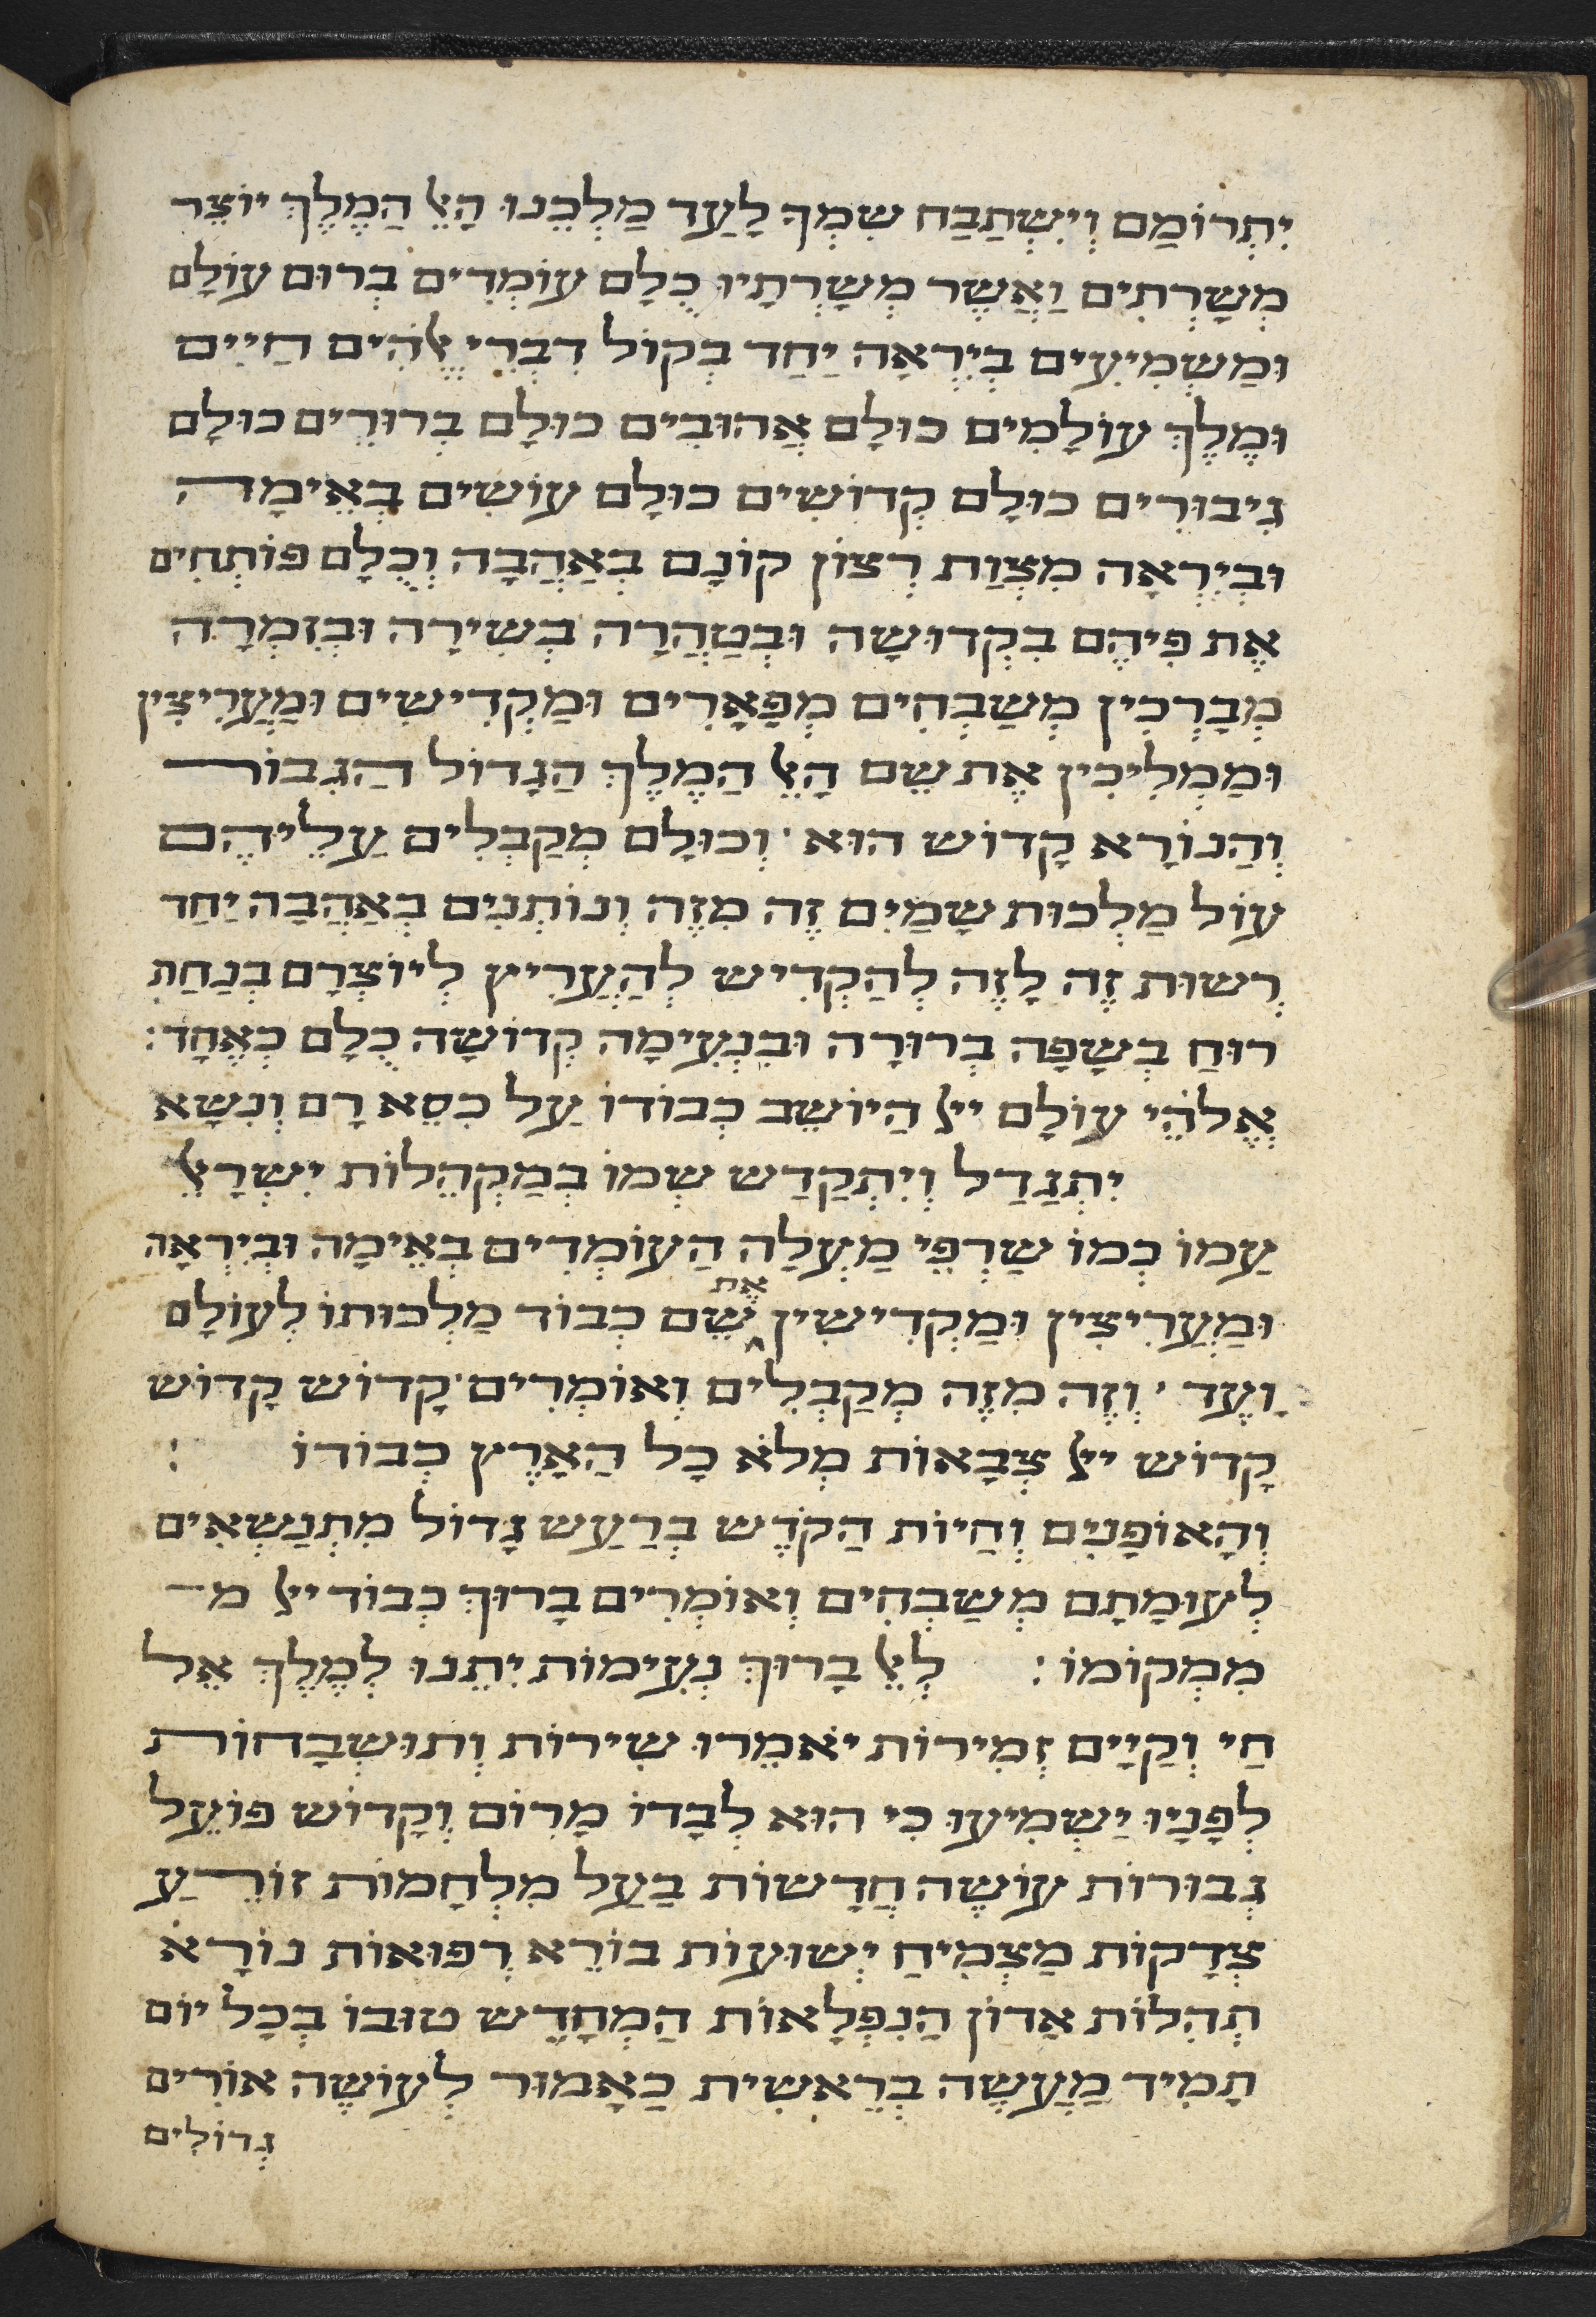 יִתְרוֹמַם וְיִשְׁתַבַּח שִׁמְךָ לָעַד מַלְכֵּנוּ הָאֵל הַמֶלֶךְ יוֹצֵר
מְשָׁרְתִים וַאֲשֶׁר מְשָׁרְתָיו כֻּלָם עוֹמְדִים בְּרוּם עוֹלָם
וּמַשְׁמִיעִים בְּיִרְאָה יַחַד בְּקוֹל דִבְרֵי אֱלֹהִים חַיִים
וּמֶלֶךְ עוֹלָמִים כּוּלָם אֲהוּבִים כּוּלָם בְּרוּרִים כּוּלָם
גִיבּוֹרִים כּוּלָם קְדוֹשִׁים כּוּלָם עוֹשִׂים בְּאֵימָה
וּבְיִרְאָה מִצְוַת רְצוֹן קוֹנָם בְּאַהֲבָה וְכֻלָם פּוֹתְחִים
אֶת פִּיהֶם בִּקְדוּשָׁה וּבְטַהֲרָה בְּשִׁירָה וּבְזִמְרָה
מְבָרְכִין מְשַׁבְּחִים מְפָאֲרִים וּמַקְדִישִׁים וּמַעֲרִיצִין
וּמַמְלִיכִין אֶת שֵׁם הָאֵל הַמֶלֶךְ הַגָדוֹל הַגִבּוֹר
וְהַנוֹרָא קָדוֹשׁ הוּא · וְכוּלָם מְקַבְּלִים עֲלֵיהֶם
עוֹל מַלְכוּת שָׁמַיִם זֶה מִזֶה וְנוֹתְנִים בְּאַהֲבָה יַחַד
רְשׁוּת זֶה לָזֶה לְהַקְדִישׁ לְהַעֲרִיץ לְיוֹצְרָם בְּנַחַת
רוּחַ בְּשָׂפָה בְרוּרָה וּבִנְעִימָה קְדוֹשָׁה כֻּלָם כְּאֶחָד :
אֱלֹהֵי עוֹלָם ייל הַיוֹשֵׁב כְּבוֹדוֹ עַל כִּסֵא רָם וְנִשָׂא
יִתְגַדַל וְיִתְקַדַשׁ שְׁמוֹ בְּמַקְהֵלוֹת יִשְׂרָאֵל
עַמוֹ כְּמוֹ שַׂרְפֵי מַעְלָה הָעוֹמְדִים בְּאֵימָה וּבְיִרְאָה
וּמַעֲרִיצִין וּמַקְדִישִׁין אֶת שֵׁם כְּבוֹד מַלְכוּתוֹ לְעוֹלָם
וָעֶד · וְזֶה מִזֶה מְקַבְּלִים וְאוֹמְרִים · קָדוֹשׁ קָדוֹשׁ
קָדוֹשׁ ייל צְבָאוֹת מְלֹא כָל הָאָרֶץ כְּבוֹדוֹ :
וְהָאוֹפָנִים וְחַיוֹת הַקֹדֶשׁ בְּרַעַשׁ גָדוֹל מִתְנַשְׂאִים
לְעוּמָתָם מְשַׁבְּחִים וְאוֹמְרִים בָּרוּךְ כְּבוֹד ייל מ
מִמְקוֹמוֹ : לְאֵל בָּרוּךְ נְעִימוֹת יִתֵנוּ לְמֶלֶךְ אֵל
חַי וְקַיָים זְמִירוֹת יֹאמֵרוּ שִׁירוֹת וְתוּשְׁבָּחוֹת
לְפָנָיו יַשְׁמִיעוּ כִּי הוּא לְבַדוֹ מָרוֹם וְקָדוֹשׁ פּוֹעֵל
גְבוּרוֹת עוֹשֶׂה חֲדָשׁוֹת בַּעַל מִלְחָמוֹת זוֹרֵעַ
צְדָקוֹת מַצְמִיחַ יְשׁוּעוֹת בּוֹרֵא רְפוּאוֹת נוֹרָא
תְהִלוֹת אֲדוֹן הַנִפְלָאוֹת הַמְחַדֵשׁ טוּבוֹ בְּכָל יוֹם
תָמִיד מַעֲשֵׂה בְרֵאשִׁית כָּאָמוּר לְעוֹשֶׂה אוֹרִים
גְדוֹלִים